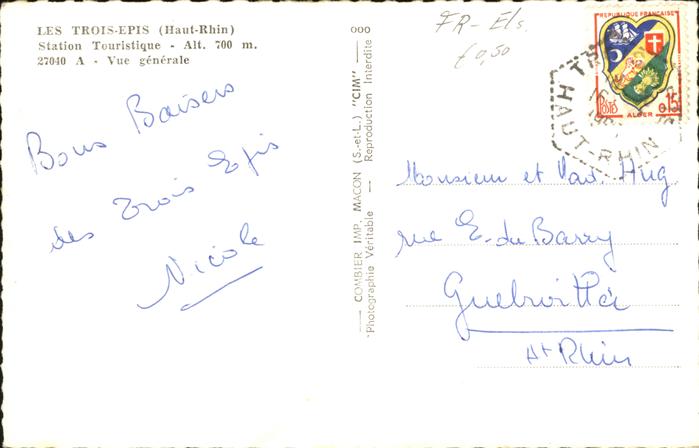 LES TROIS-EPIS (Haut-Rhin)
Station Touristique - Alt. 700 m.
27040 A - Vue générale
Bons Baisers
des Trois Epis
Nicole
COMBIER IMP. MACON (S.-et-L.) "CIM"
Photographie Véritable — Reproduction Interdite
FR-Els.
€0,50
REPUBLIQUE FRANÇAISE
POSTES
0.15
ALGER
HAUT-RHIN
Monsieur et Mad. Hug
rue E. du Barry
Guebwiller
Ht Rhin